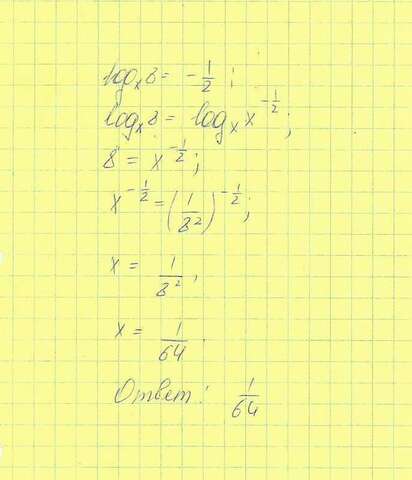 logₓ8 = -1/2 ;
logₓ8 = logₓ x^(-1/2) ;
8 = x^(-1/2) ;
x^(-1/2) = (1/8²)^(-1/2) ;
x = 1/8² ;
x = 1/64
Ответ: 1/64